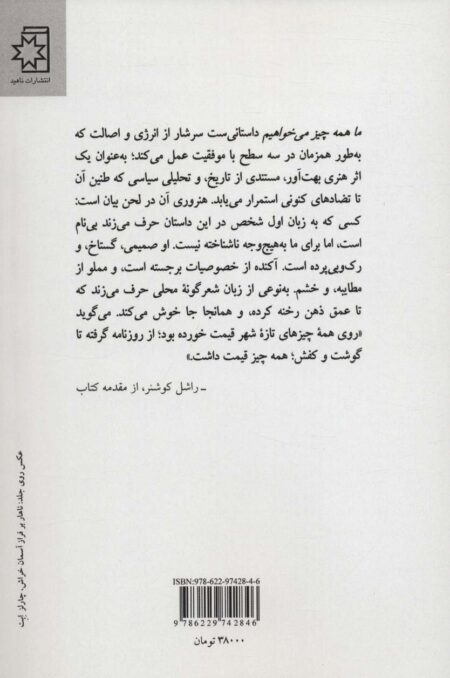 انتشارات ناهید
ما همه چیز می‌خواهیم داستانی‌ست سرشار از انرژی و اصالت که
به‌طور همزمان در سه سطح با موفقیت عمل می‌کند؛ به‌عنوان یک
اثر هنری بهت‌آور، مستندی از تاریخ، و تحلیلی سیاسی که طنین آن
تا تضادهای کنونی استمرار می‌یابد. هنروری آن در لحن بیان است:
کسی که به زبان اول شخص در این داستان حرف می‌زند بی‌نام
است، اما برای ما به‌هیچ‌وجه ناشناخته نیست. او صمیمی، گستاخ، و
رک‌وبی‌پرده است. آکنده از خصوصیات برجسته است، و مملو از
مطایبه، و خشم. به‌نوعی از زبان شعرگونهٔ محلی حرف می‌زند که
تا عمق ذهن رخنه کرده، و همانجا جا خوش می‌کند. می‌گوید
«روی همهٔ چیزهای تازهٔ شهر قیمت خورده بود؛ از روزنامه گرفته تا
گوشت و کفش؛ همه چیز قیمت داشت.»
ـ راشل کوشنر، از مقدمه کتاب
عکس روی جلد: ناهار بر فراز آسمان خراش، چارلز ابت
ISBN:978-622-97428-4-6
9 786229 742846
۳۸۰۰۰ تومان